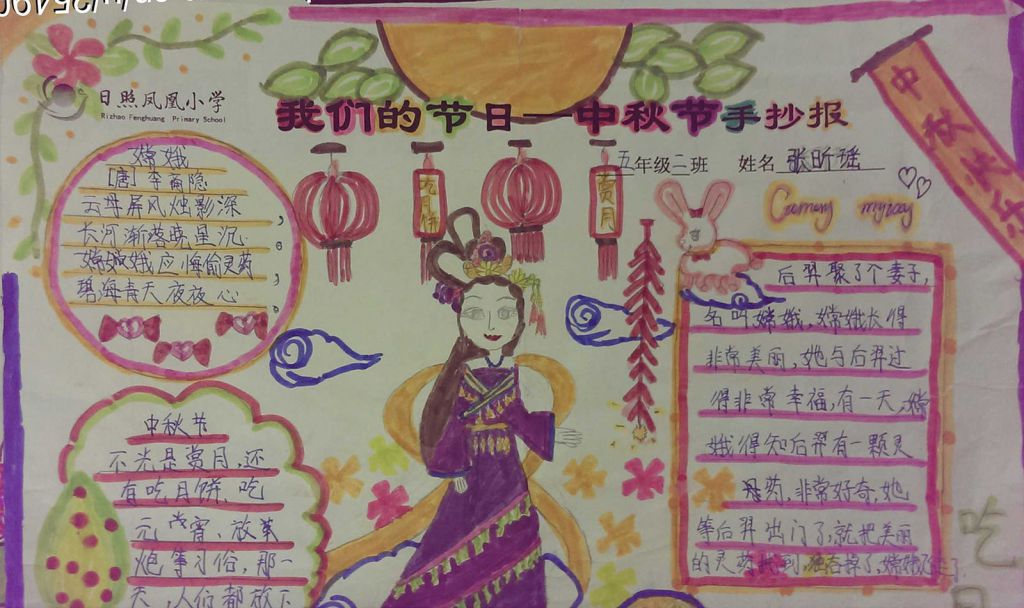 日照凤凰小学
Rizhao Fenghuang Primary School
我们的节日—中秋节手抄报
五年级二班 姓名 张昕瑶
中秋快乐
嫦娥
[唐]李商隐
云母屏风烛影深，
长河渐落晓星沉。
嫦娥应悔偷灵药，
碧海青天夜夜心。
吃月饼
赏月
后羿娶了个妻子,
名叫嫦娥,嫦娥长得
非常美丽,她与后羿过
得非常幸福,有一天,嫦
娥得知后羿有一颗灵
药,非常好奇,她
等后羿出门了,就把美丽
的灵药找到,
中秋节
不光是赏月,还
有吃月饼、吃
元宵、放
炮等习俗,那一
天,人们都放下
吃